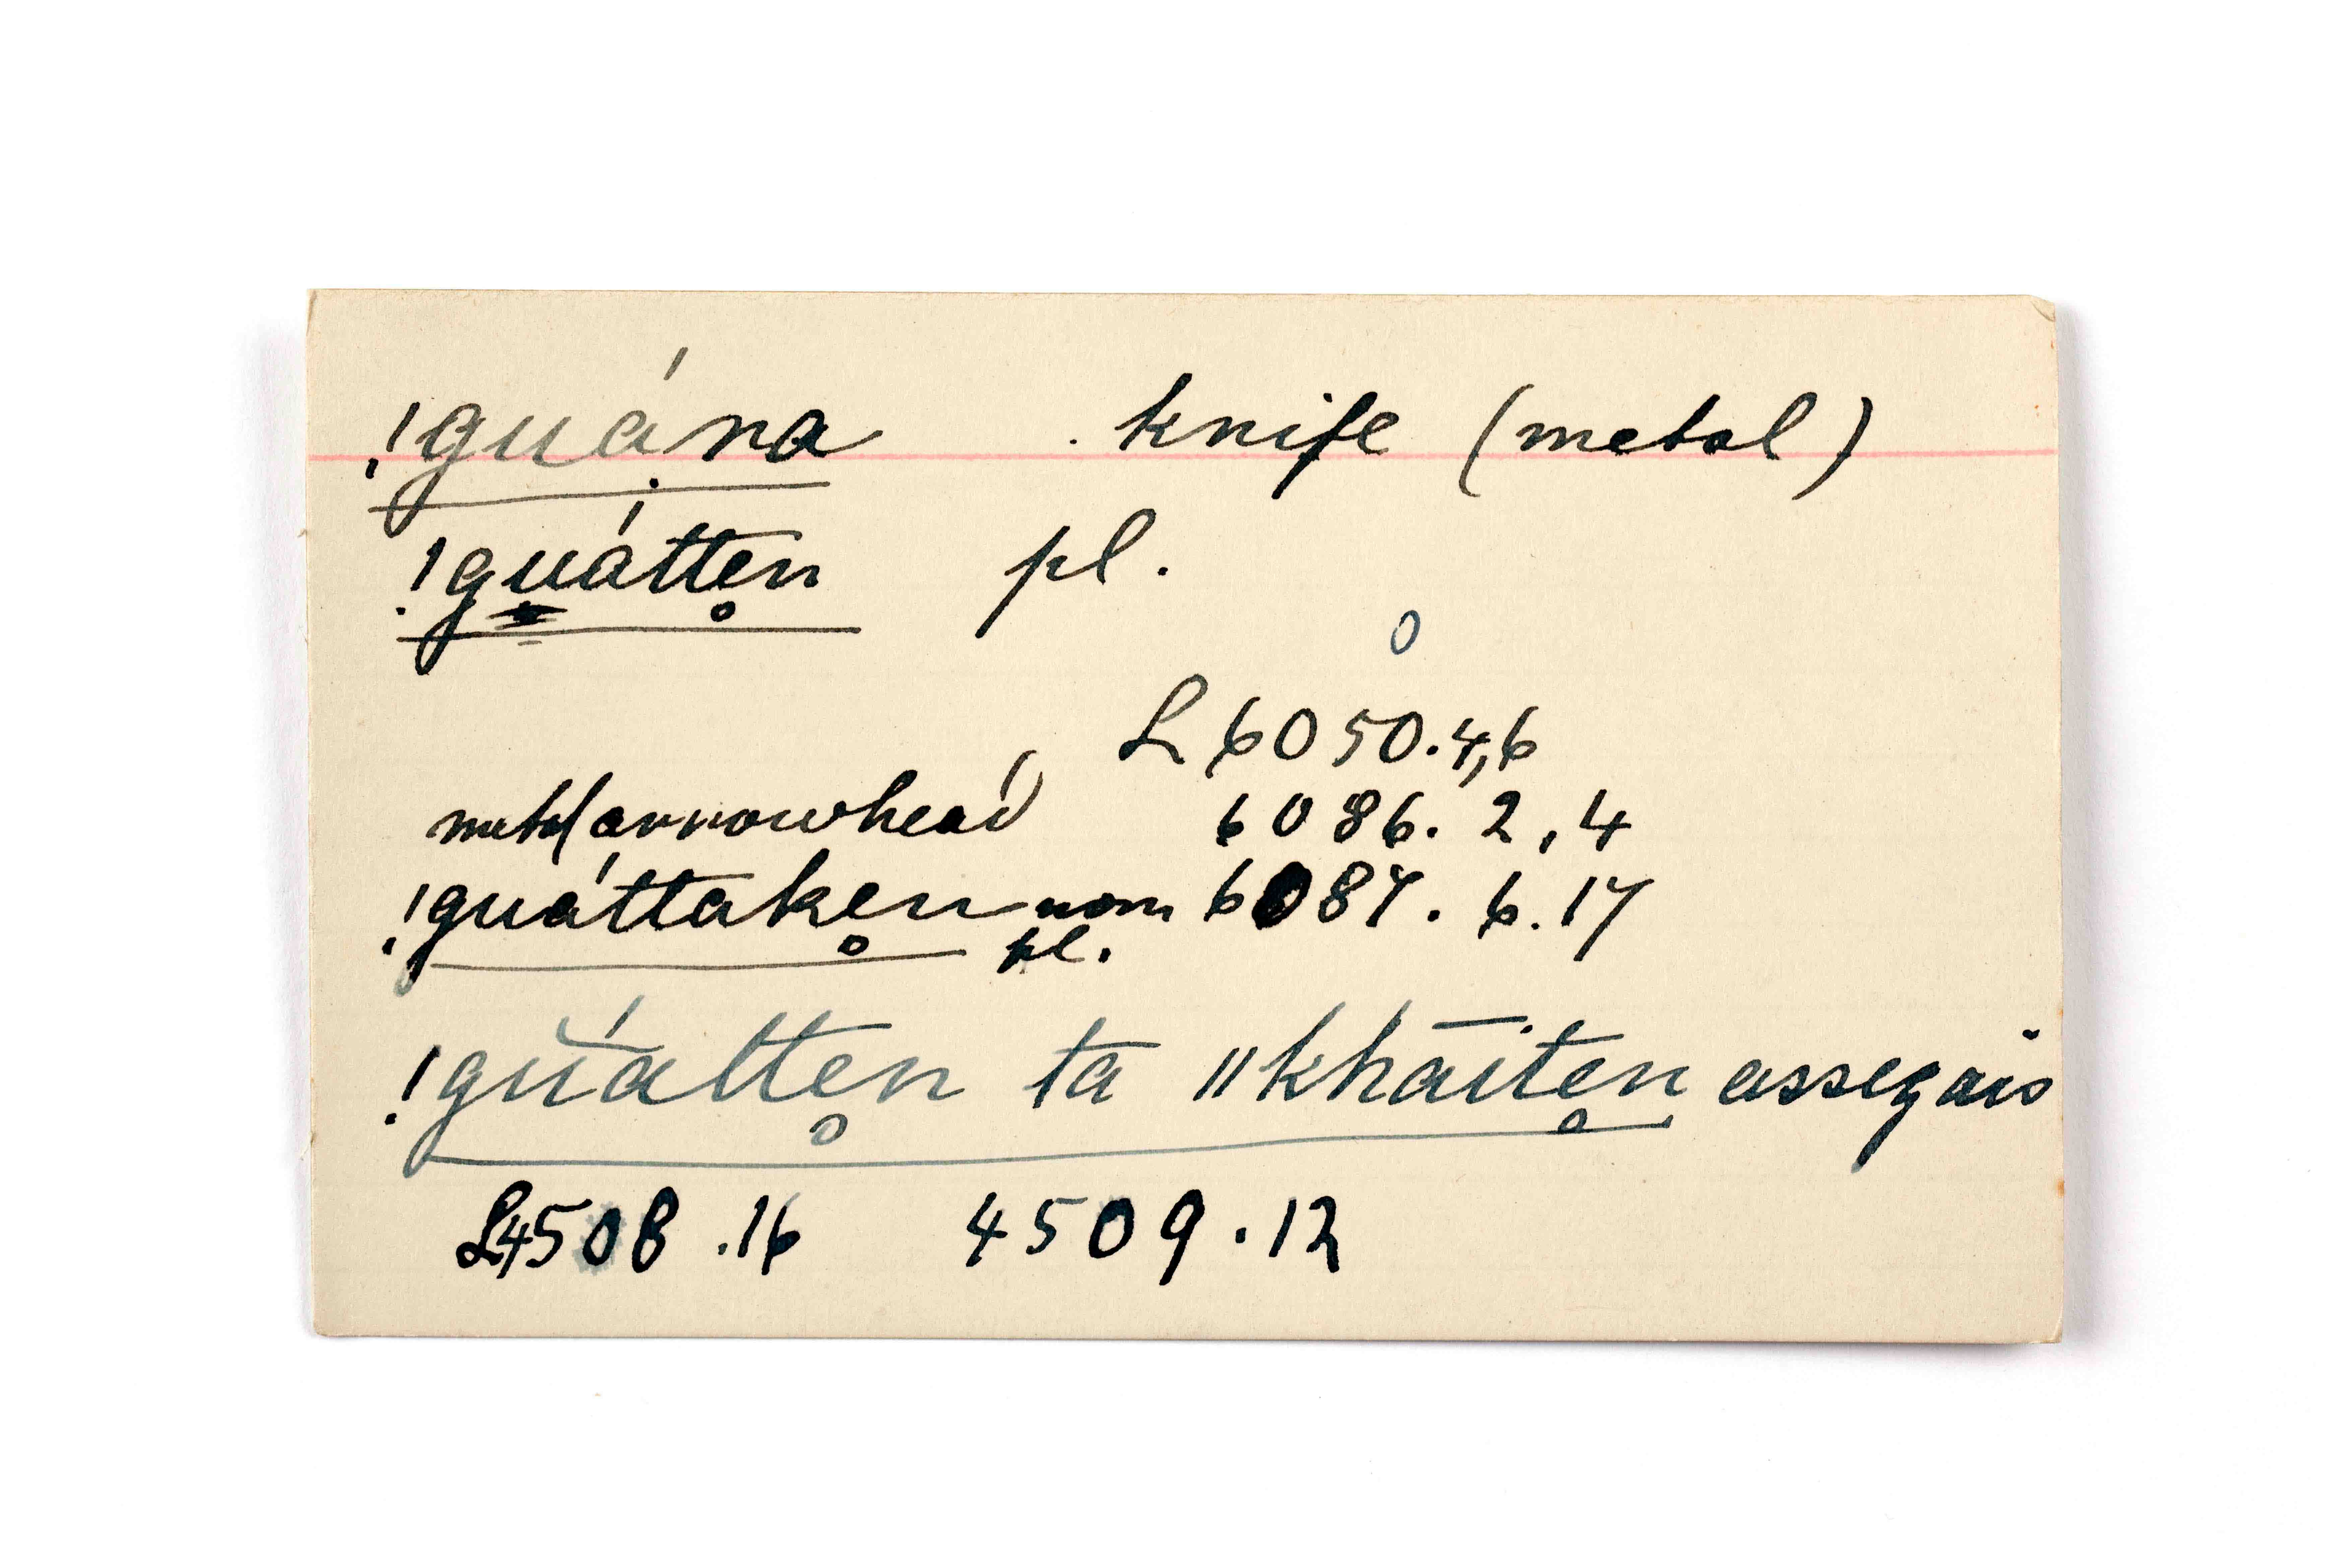 !guára . knife (metal)
!guátten̥ pl.
0
L 6050.4,6
metal arrowhead 6086. 2, 4
!guáttake̥n nom pl. 6087. 6. 17
!gŭátte̥n ta ǁkhāite̥n assegais
L4508 .16 4509 .12